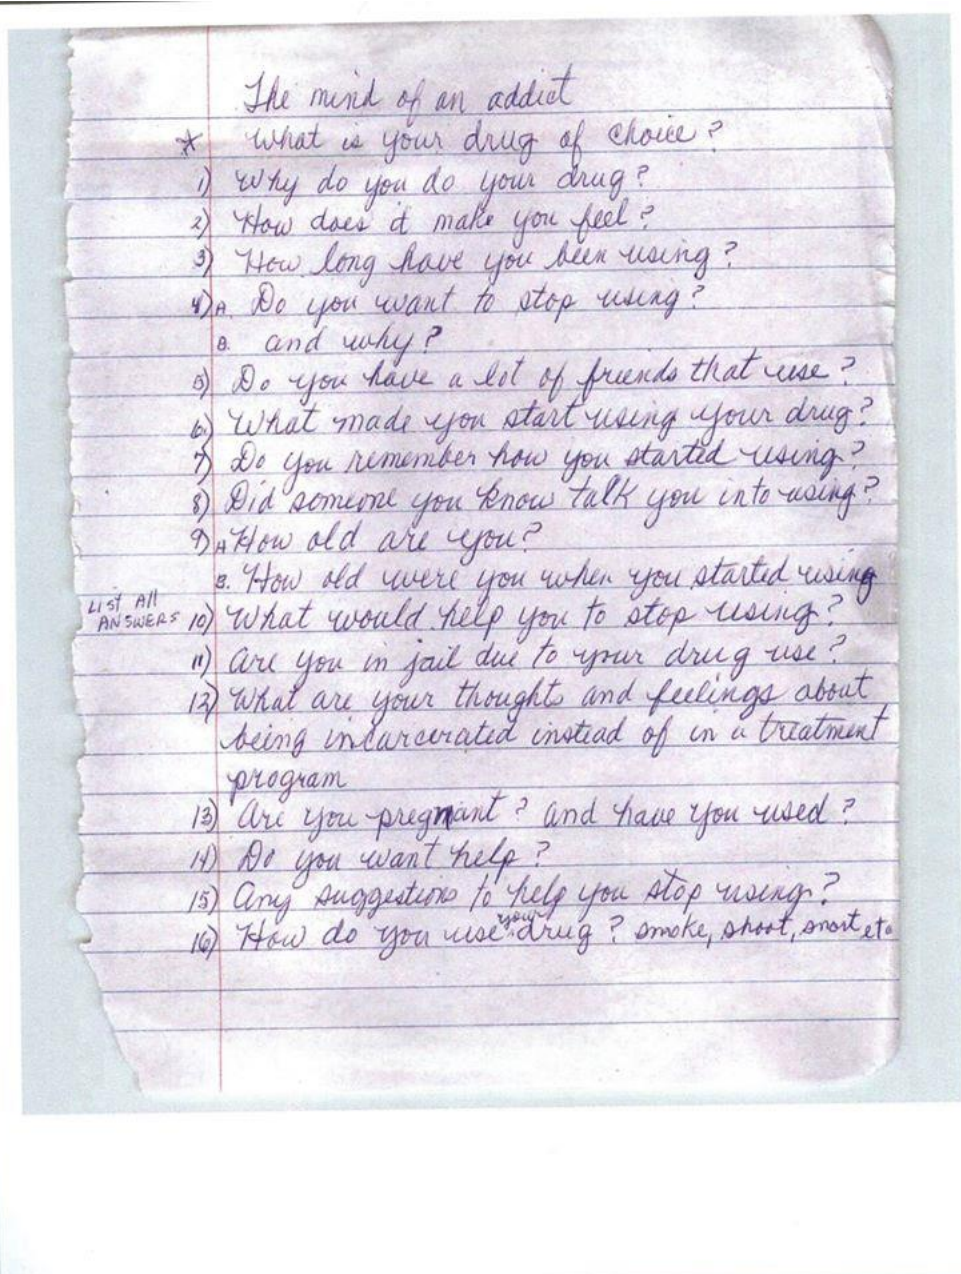 The mind of an addict
* What is your drug of choice?
1) Why do you do your drug?
2) How does it make you feel?
3) How long have you been using?
4) A. Do you want to stop using?
B. and why?
5) Do you have a lot of friends that use?
6.) What made you start using your drug?
7) Do you remember how you started using?
8) Did someone you know talk you into using?
9) A How old are you?
B. How old were you when you started using
List All
ANSWERS 10) What would help you to stop using?
11) Are you in jail due to your drug use?
12) What are your thoughts and feelings about
being incarcerated instead of in a treatment
program
13) Are you pregnant? and have you used?
14) Do you want help?
15) Any suggestions to help you stop using?
16) How do you use your drug? smoke, shoot, snort, etc